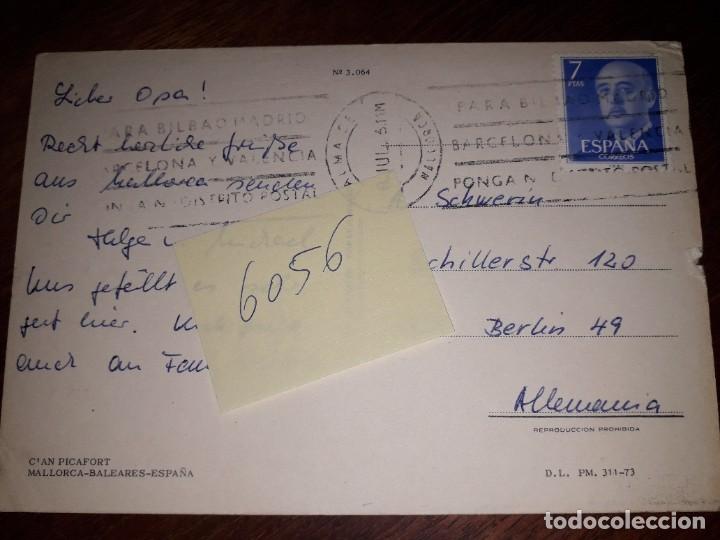 Nº 3.064
Lieber Opa!
Recht herzliche Grüße
aus Mallorca senden
Dir
Helge
Uns gefällt es
gut hier.
auch an Fam
6056
PARA BILBAO MADRID
BARCELONA Y VALENCIA
PONGAN DISTRITO POSTAL
PALMA DE
MALLORCA
7
PTAS
ESPAÑA
CORREOS
PARA BILBAO MADRID
BARCELONA VALENCIA
PONGAN DISTRITO POSTAL
Schwerin
chillerstr. 120
Berlin 49
Allemania
REPRODUCCION PROHIBIDA
C'AN PICAFORT
MALLORCA-BALEARES-ESPAÑA
D.L. PM. 311-73
todocoleccion.net